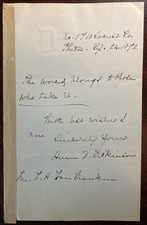 No. 1710 Locust St.
Phila. Sep. 24. 1892
The World belongs to those
who take it.
With best wishes I
am Sincerely Yours
Anna E. Dickinson